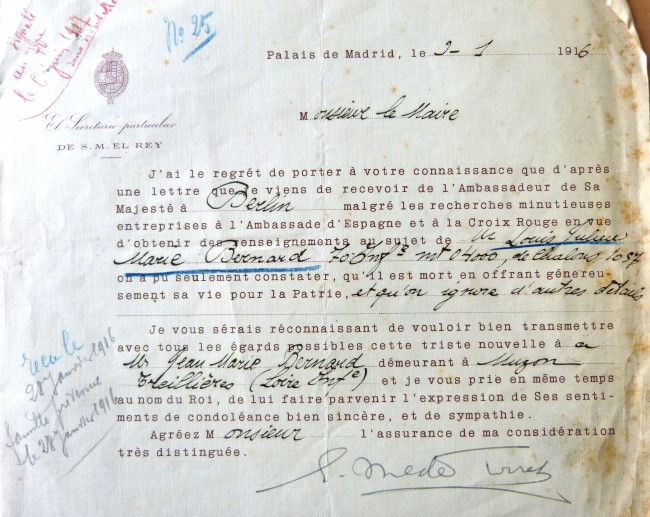 No 25
signalé
au
le 6 juin 1917
Palais de Madrid, le 2-1 1916
Monsieur le Maire
El Secretario particular
DE S. M. EL REY
J'ai le regrét de porter à votre connaissance que d'après
une lettre que je viens de recevoir de l'Ambassadeur de Sa
Majesté à Berlin malgré les recherches minutieuses
entreprises à l'Ambassade d'Espagne et à la Croix Rouge en vue
d'obtenir des renseignements au sujet de Mr Louis Julien
Marie Bernard 70 Infie mle 04000, de Chalons 1057
on a pu seulement constater, qu'il est mort en offrant génereu-
sement sa vie pour la Patrie, et qu'on ignore d'autres détails
Je vous sérais réconnaissant de vouloir bien transmettre
avec tous les égards possibles cette triste nouvelle à a
Mr Jean Marie Bernard démeurant à Muzon
Treillières (Loire Infre) et je vous prie en même temps
au nom du Roi, de lui faire parvenir l'expression de Ses senti-
ments de condoléance bien sincère, et de sympathie.
Agréez Monsieur l'assurance de ma considération
très distinguée.
reçu le
28 janvier 1916
famille prévenue
le 28 janvier 1916